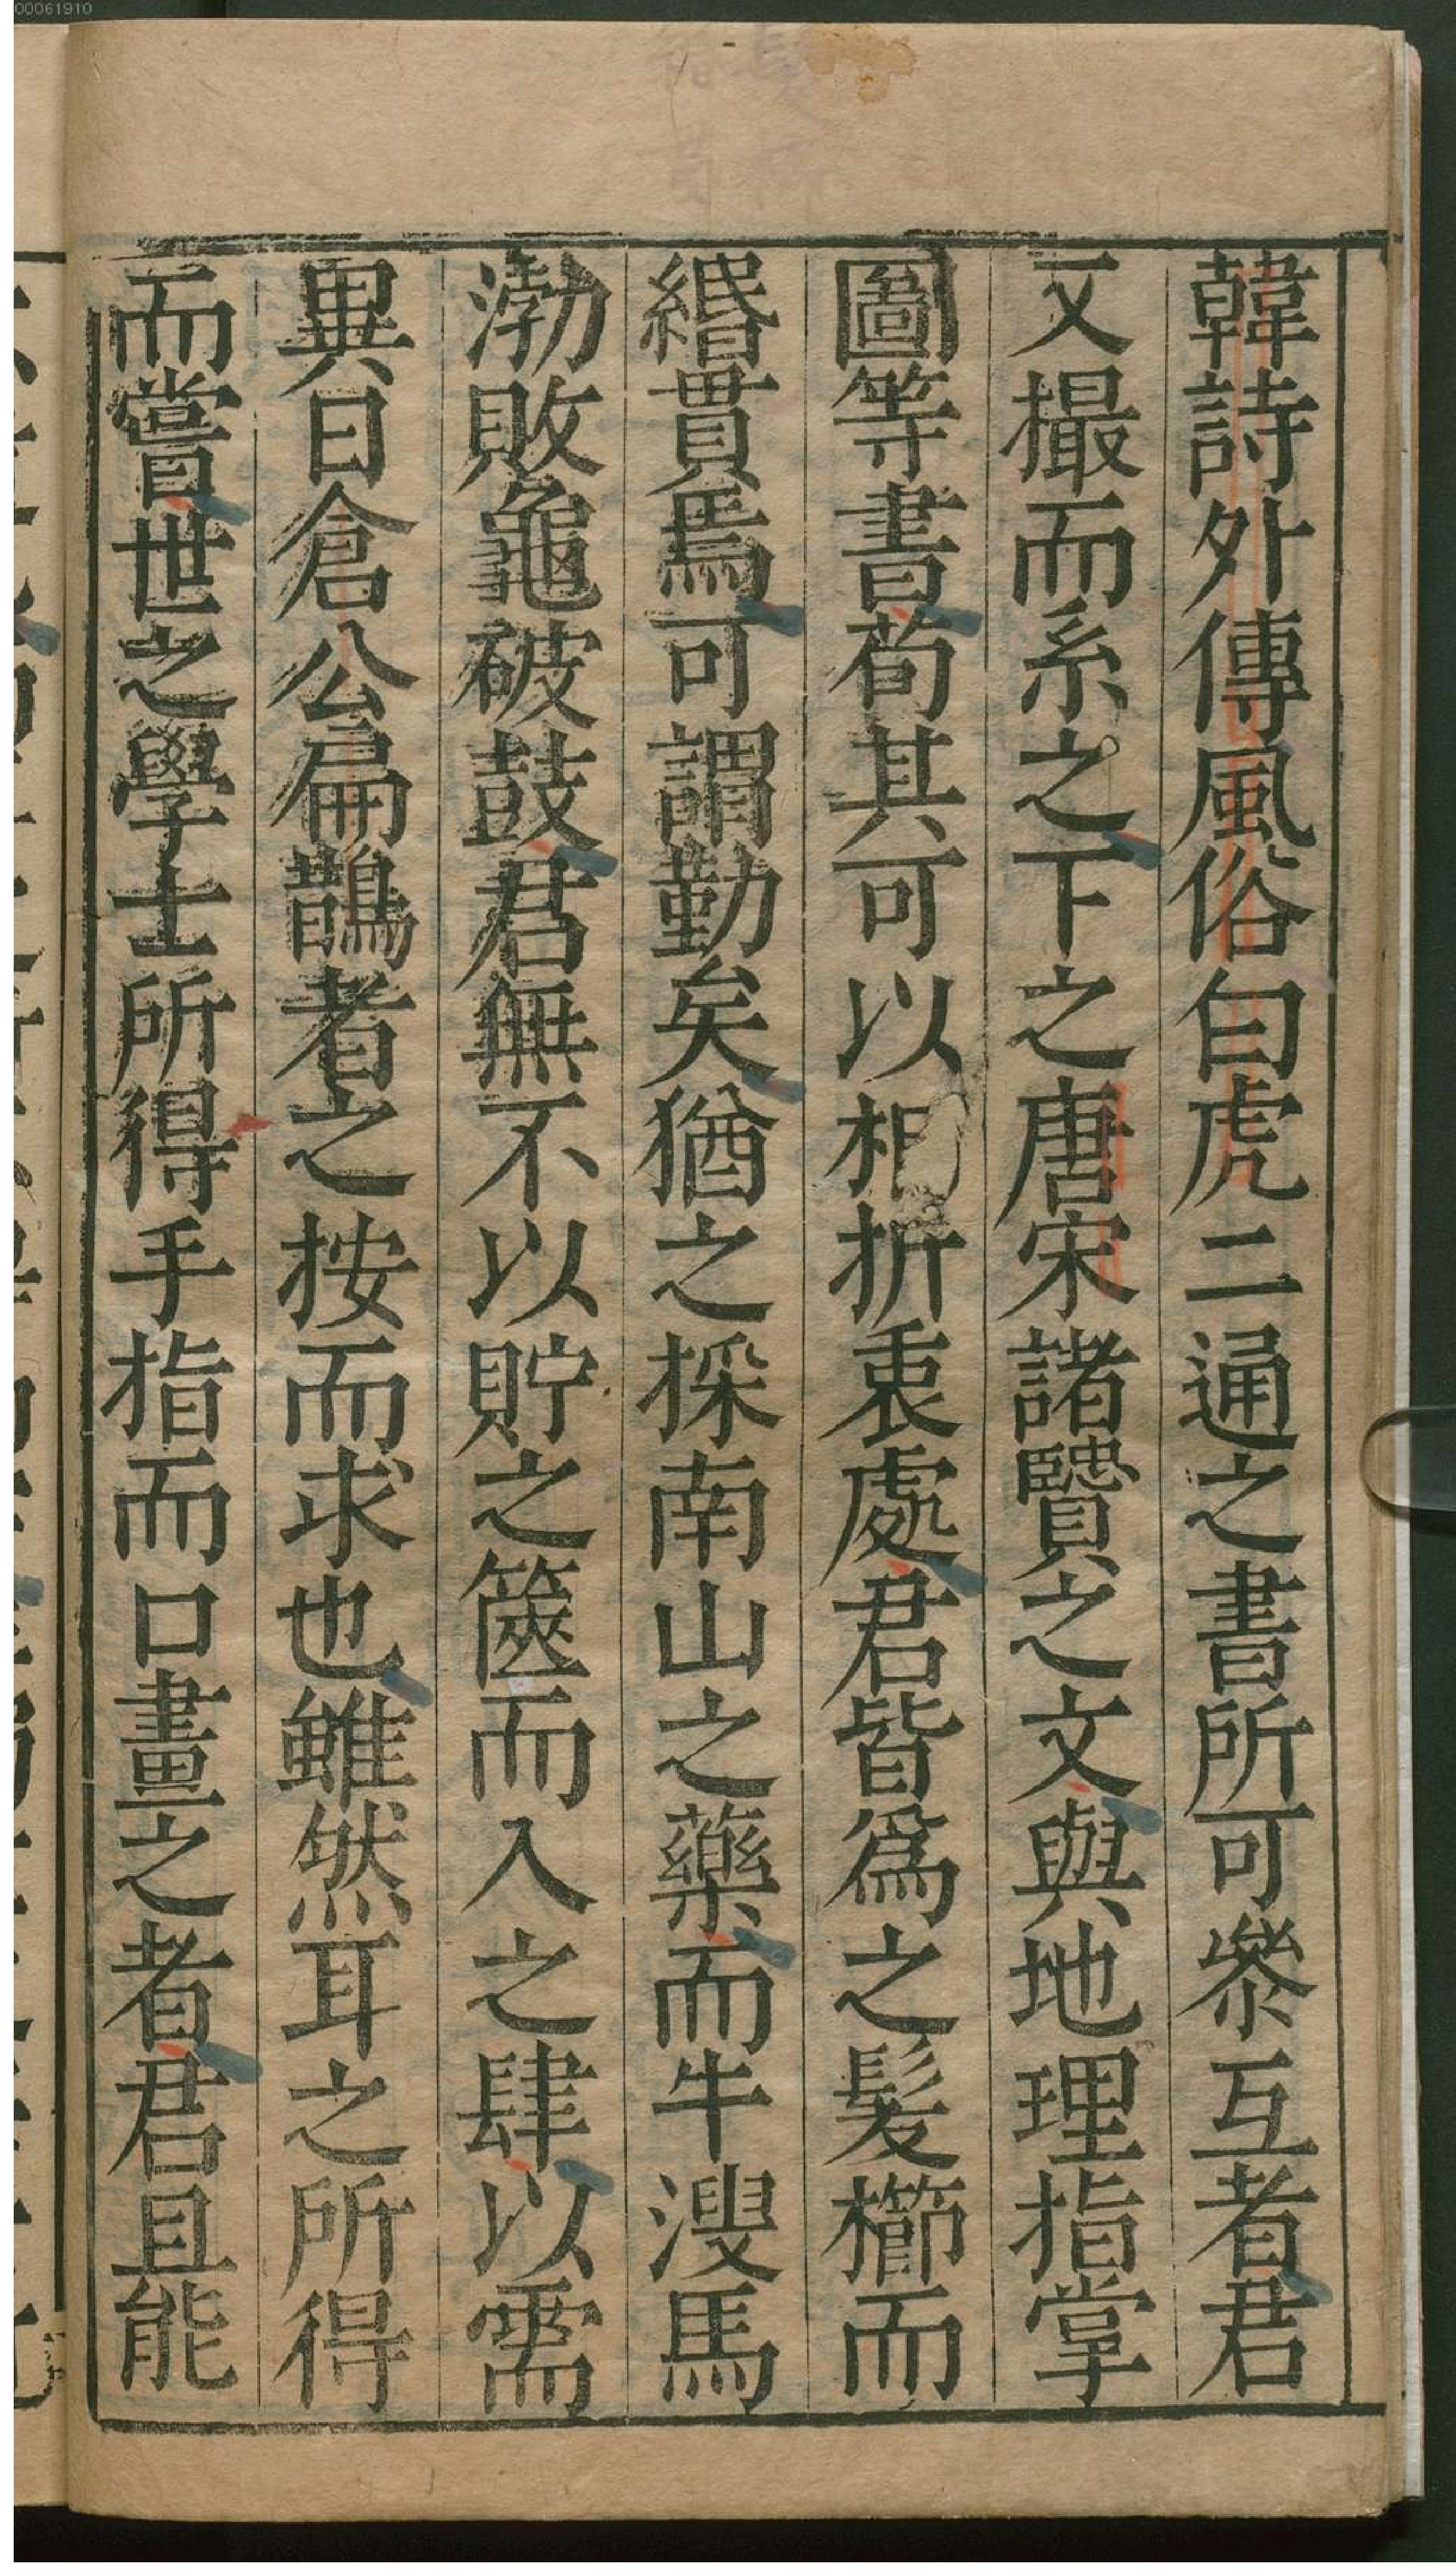 00061910
韓詩外傳風俗白虎二通之書所可叅互者君
又撮而系之下之唐宋諸賢之文與地理指掌
圖等書苟其可以相折衷處君皆爲之髪櫛而
緡貫焉可謂勤矣猶之採南山之藥而牛溲馬
渤敗龜破鼓君無不以貯之篋而入之肆以需
異日倉公扁鵲者之按而求也雖然耳之所得
而嘗世之學士所得手指而口畫之者君且能